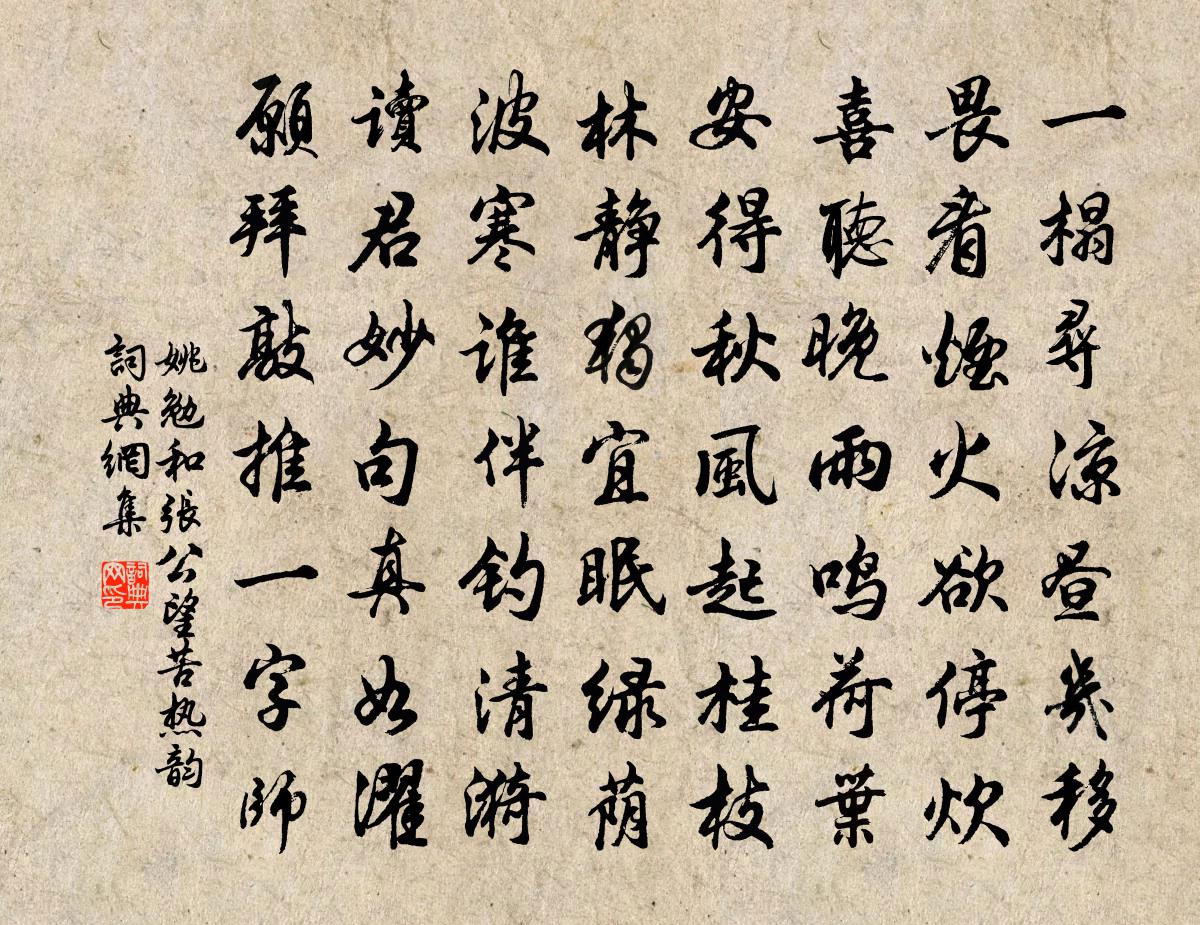 一榻尋涼昼幾移
畏看煙火欲停炊
喜聽晚雨鸣荷葉
安得秋風起桂枝
林静獨宜眠绿荫
波寒谁伴钓清漪
读君妙句真如濯
願拜敲推一字師
姚勉和張公望苦热韵
詞典網集
詞典网印